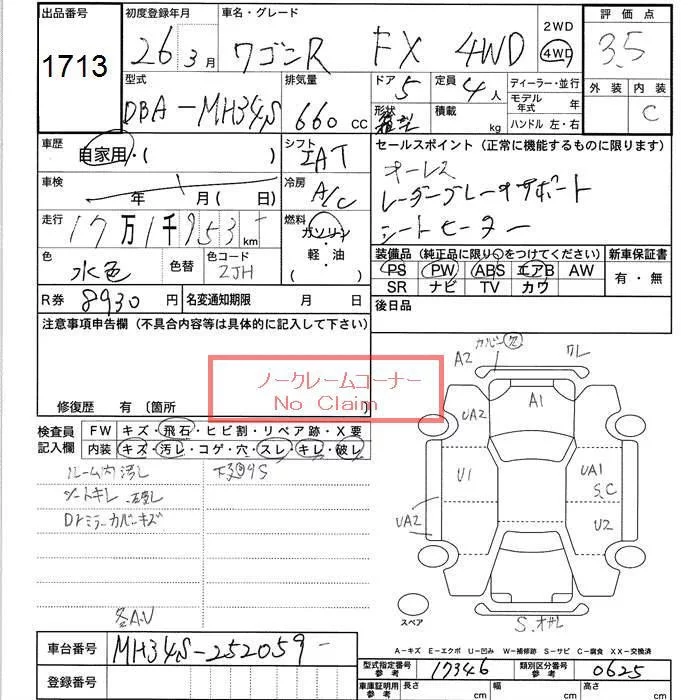 出品番号 初度登録年月 車名・グレード 2WD 評価点
1713 26 3月 ワゴンR FX 4WD 4WD 3.5
型式 排気量 ドア 5 定員 4人 ディーラー・並行 外装 内装
DBA-MH34S 660 cc 形状 箱型 積載 kg モデル年式 年 C
ハンドル 左・右
車歴 自家用・( ) シフト IAT セールスポイント (正常に機能するものに限ります)
車検 年 月 ( 日) 冷房 A/C オーレス
レーダーブレーキサポート
走行 17万1千953 km 燃料 ガソリン・軽油 シートヒーター
色 水色 色替 色コード 2JH 装備品 (純正品に限り○をつけてください) 新車保証書
PS PW ABS エアB AW 有・無
SR ナビ TV カワ
R券 8930円 名変通知期限 月 日 後日品
注意事項申告欄 (不具合内容等は具体的に記入して下さい)
ノークレームコーナー
No Claim
修復歴 有 〔箇所
検査員記入欄 FW キズ・飛石・ヒビ割・リペア跡・X要
内装 キズ・汚レ・コゲ・穴・スレ・キレ・破レ
ルーム内汚レ 下回りS
シートキレ・破レ
Drミラーカバーキズ
各A.U
A2 カバー欠 ワレ
A1
UA2
U1 UA1
S.C
UA2 U2
スペア S.オサレ
A-キズ E-エクボ U-凹み W-補修跡 S-サビ C-腐食 XX-交換済
車台番号 MH34S-252059
登録番号
型式指定番号 参考 17346 類別区分番号 参考 0625
車庫証明用 参考 長さ cm 幅 cm 高さ cm